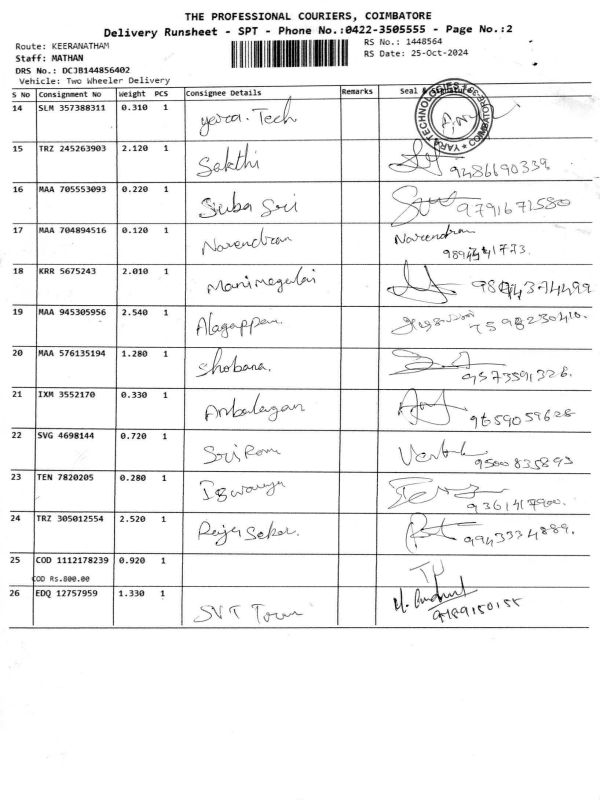 THE PROFESSIONAL COURIERS, COIMBATORE
Delivery Runsheet - SPT - Phone No.:0422-3505555 - Page No.:2
Route: KEERANATHAM
RS No.: 1448564
Staff: MATHAN
RS Date: 25-Oct-2024
DRS No.: DCJB144856402
Vehicle: Two Wheeler Delivery
S No Consignment No Weight PCS Consignee Details Remarks Seal &
14 SLM 357388311 0.310 1 yara. Tech
YARA TECHNOLOGIES COIMBATORE
15 TRZ 245263903 2.120 1 Sakthi 9486690339
16 MAA 705553093 0.220 1 Suba Sri 9791671580
17 MAA 704894516 0.120 1 Narendran Narendran
9894441773.
18 KRR 5675243 2.010 1 Manimegalai 9894374499
19 MAA 945305956 2.540 1 Alagappan. 7598230410.
20 MAA 576135194 1.280 1 Shobana. 9573591328.
21 IXM 3552170 0.330 1 Anbalagan 9659059628
22 SVG 4698144 0.720 1 Sri Ram 9500835893
23 TEN 7820205 0.280 1 9361417900.
24 TRZ 305012554 2.520 1 Raja Sekar. 9943334889.
25 COD 1112178239 0.920 1
COD Rs.800.00
26 EDQ 12757959 1.330 1 SVT
9489150155